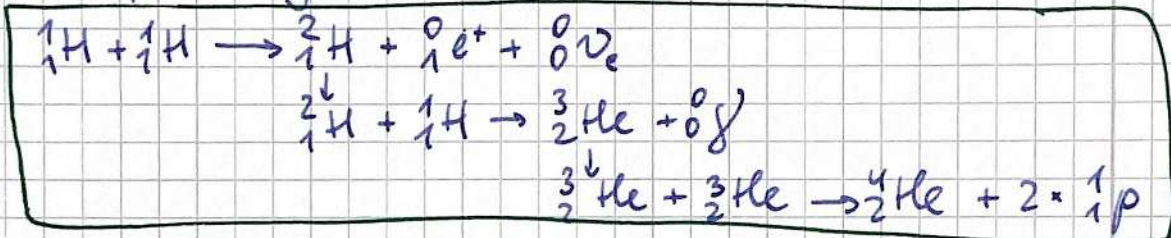 ¹₁H + ¹₁H → ²₁H + ⁰₁e⁺ + ⁰₀νₑ
↓
²₁H + ¹₁H → ³₂He + ⁰₀γ
↓
³₂He + ³₂He → ⁴₂He + 2 · ¹₁p